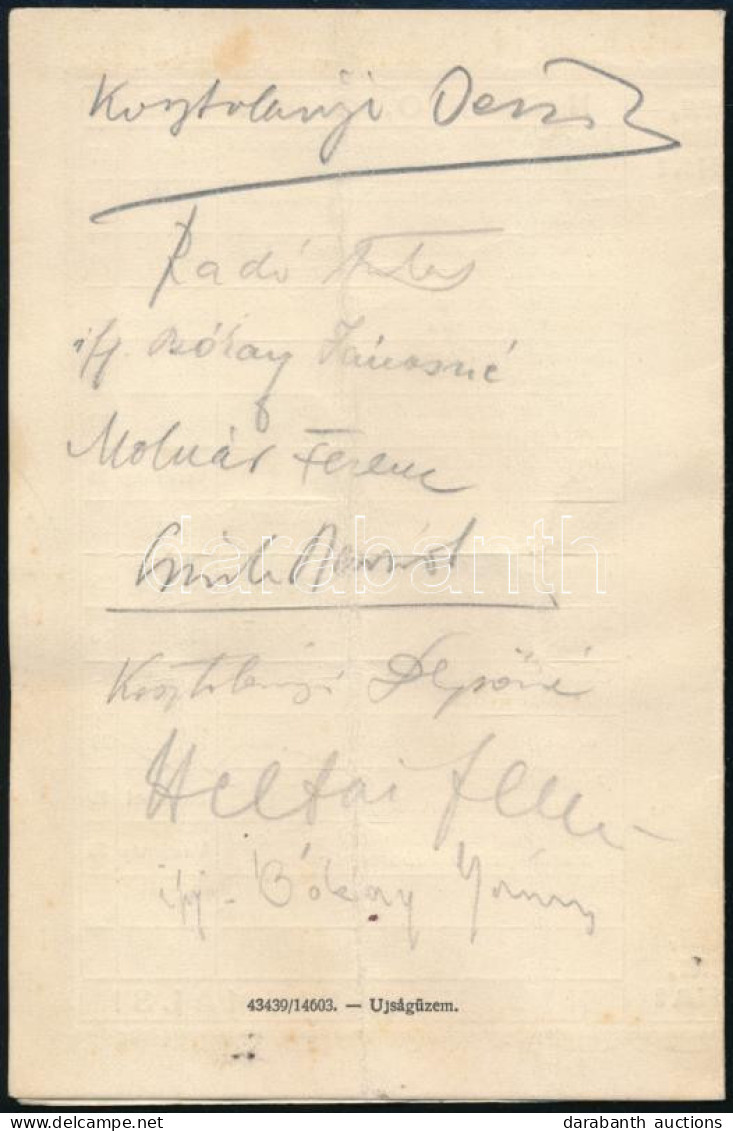 Kosztolányi Dezső
Radó Antal
ifj. Bókay Jánosné
Molnár Ferenc
darabanth
Kosztolányi Dezsőné
Heltai Jenő
ifj. Bókay János
43439/14603. — Ujságüzem.
darabanth auctions